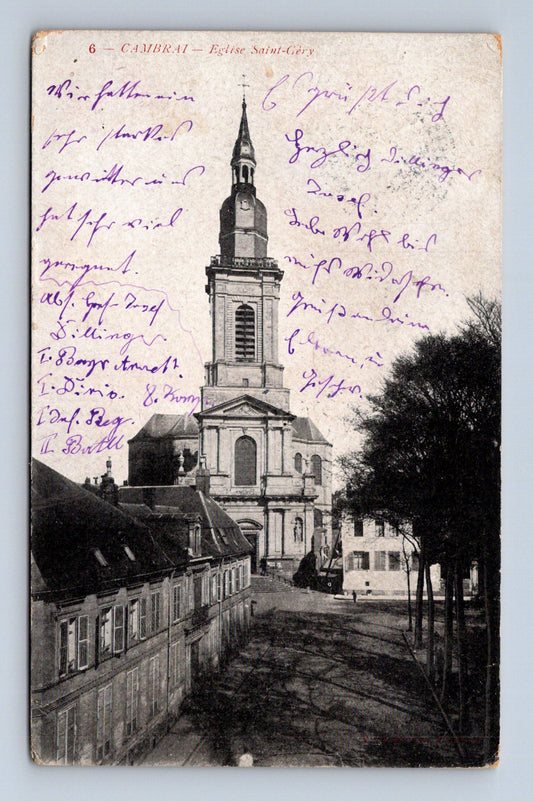 6 – CAMBRAI – Eglise Saint-Géry
Wir hatten ein
sehr starkes
gewitter uns
hat sehr viel
geregnet.
Abs. Gefr. Josef
Dillinger
I. Bayr. Armeek.
I. Divis. 8. Komp.
I. Inf. Reg.
II. Batll
Es grüßt dich
Herzlich Dillinger
Josef.
Lebe Wohl bis
aufs Wiedersehn
Grüße an deine
Eltern u.
Geschw.